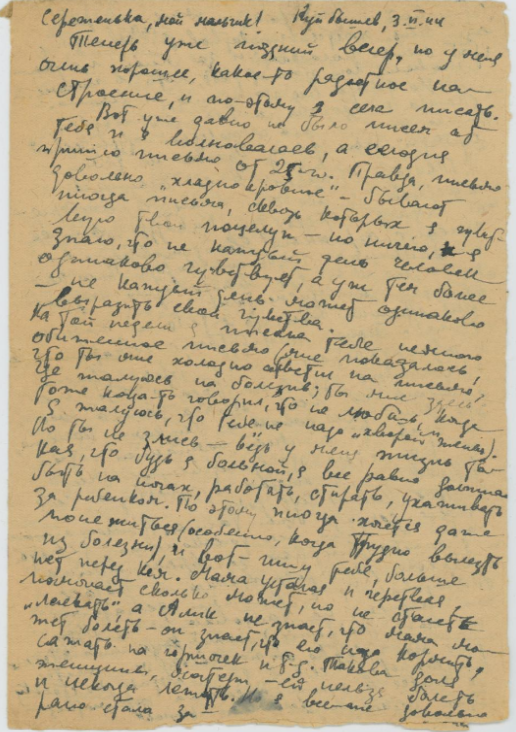 Сереженька, мой мальчик! Куйбышев, 3.VI.44
Теперь уже поздний вечер, но у меня
очень хорошее, какое-то радостное на-
строение, и по-этому я села писать.
Вот уже давно не было писем от
тебя и я волновалась, а сегодня
пришло письмо от 25-го. Правда, письмо
довольно "хладнокровное" – бывают
иногда письма, сквозь которых я чувст-
вую твои поцелуи – но ничего, я
знаю, что не каждый день человек
одинаково чувствует, а уж тем более
– не каждый день может одинаково
выразить свои чувства.
На той неделе я писала тебе немного
обиженное письмо (мне показалось,
что ты мне холодно ответил на письмо,
где жалуюсь на болезнь; ты мне здесь
тоже когда-то говорил, что не любишь, когда
я жалуюсь, что тебе не надо "хворой жены").
Но ты не злись – ведь у меня жизнь та-
кая, что будь я больной, я все равно должна
быть на ногах, работать, стирать, ухаживать
за ребенком. По этому иногда хочется даже
понежиться (особенно, когда трудно вылезть
из болезни), и вот – пишу тебе, больше
нет перед кем. Мама усталая и
помогает сколько может, но не станет
"лелеять" а Алик не знает, что мама мо-
жет болеть – он знает, что его надо кормить,
сажать на горшочек и т.д. Такова доля
женщины, матери – ей нельзя болеть
и некогда лежать. И я все-же довольно
рано стала за-